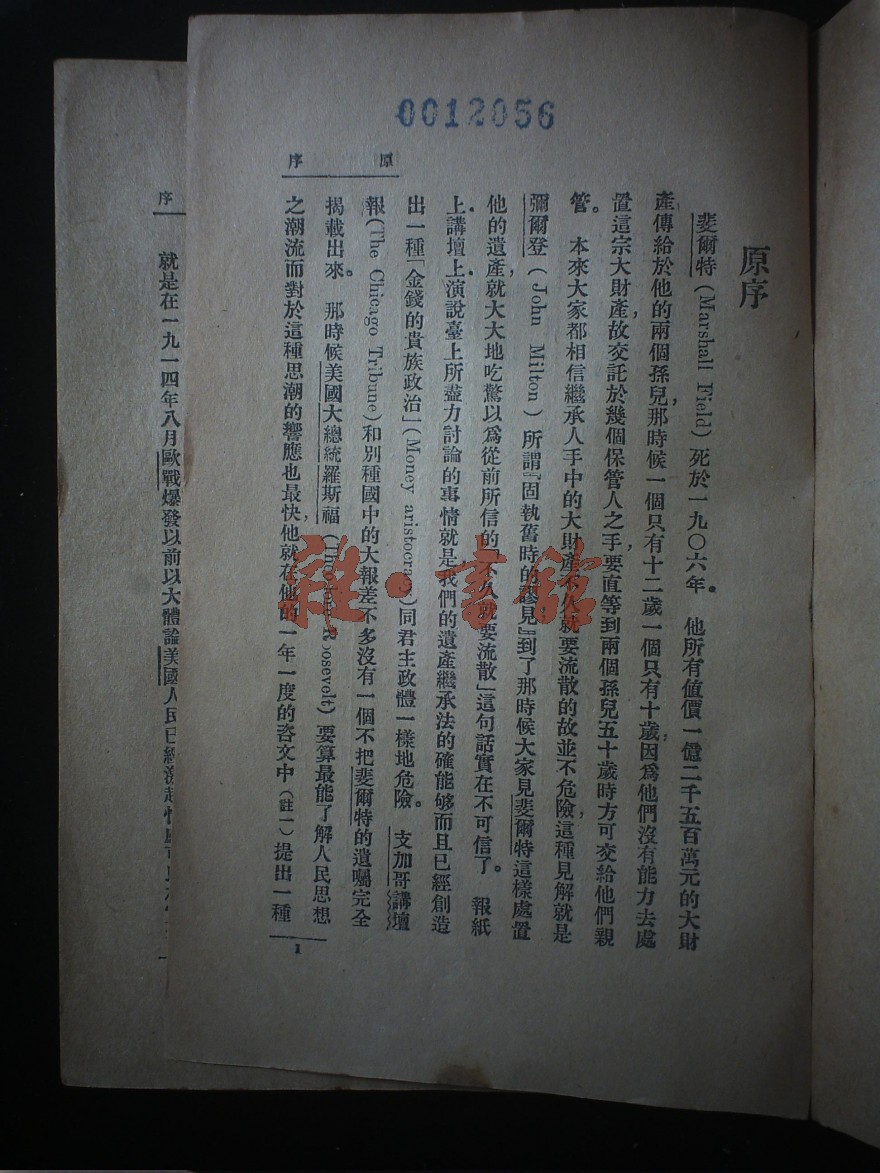 0012056
原序
原序
斐爾特(Marshall Field)死於一九〇六年。他所有值價一億二千五百萬元的大財
產傳給於他的兩個孫兒,那時候一個只有十二歲一個只有十歲,因爲他們沒有能力去處
置這宗大財產,故交託於幾個保管人之手,要直等到兩個孫兒五十歲時方可交給他們親
管。本來大家都相信繼承人手中的大財產不久就要流散的故並不危險,這種見解就是
彌爾登(John Milton)所謂『固執舊時的謬見』到了那時候大家見斐爾特這樣處置
他的遺產,就大大地吃驚以爲從前所信的「不久就要流散」這句話實在不可信了。報紙
上,講壇上,演說臺上所盡力討論的事情就是我們的遺產繼承法的確能够而且已經創造
出一種「金錢的貴族政治」(Money aristocracy)同君主政體一樣地危險。支加哥講壇
報(The Chicago Tribune)和別種國中的大報差不多沒有一個不把斐爾特的遺囑完全
揭載出來。那時候美國大總統羅斯福(Theodore Roosevelt)要算最能了解人民思想
之潮流而對於這種思潮的響應也最快,他就在他的一年一度的咨文中(註一)提出一種
1
序
就是在一九一四年八月歐戰爆發以前以大體論美國人民已經
雜·書館